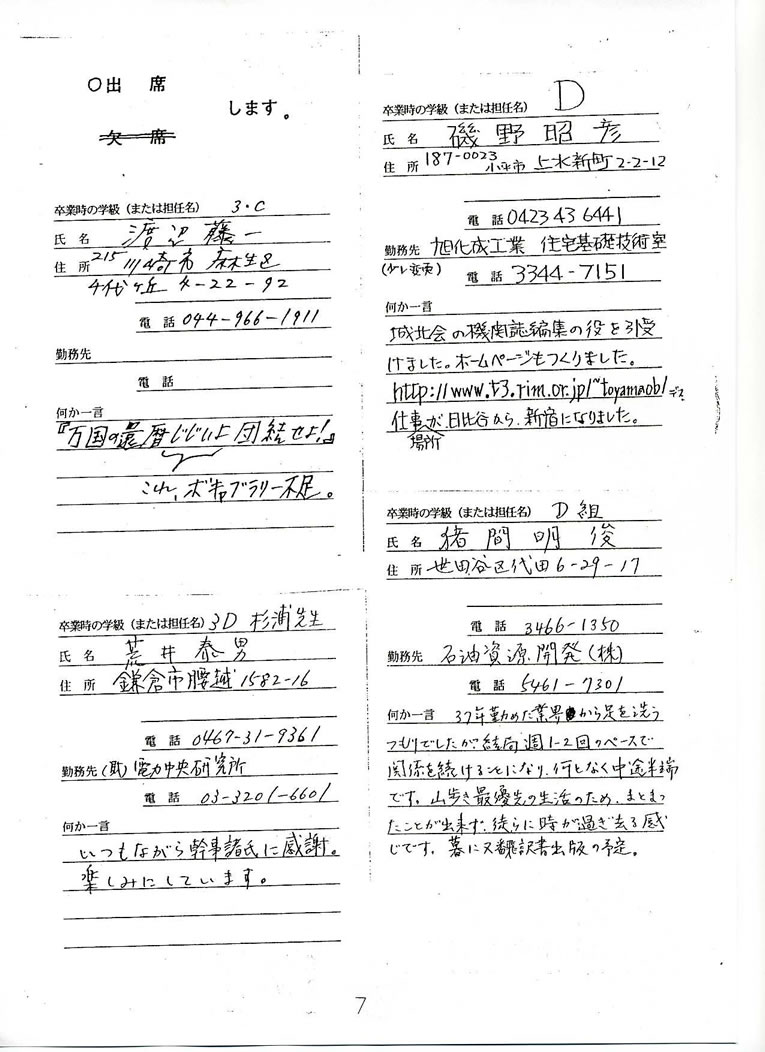 ○出 席
します。
欠 席
卒業時の学級（または担任名） 3・C
氏 名 渡辺 藤一
住 所 215 川崎市 麻生区
千代ヶ丘 4-22-92
電 話 044-966-1911
勤務先
電 話
何か一言
『万国の還暦じじいよ団結せよ!』
これ、ボキャブラリー不足。
卒業時の学級（または担任名） 3D 杉浦先生
氏 名 荒井 泰男
住 所 鎌倉市腰越1582-16
電 話 0467-31-9361
勤務先 (財)電力中央研究所
電 話 03-3201-6601
何か一言
いつもながら幹事諸氏に感謝。
楽しみにしています。
卒業時の学級（または担任名） D
氏 名 磯野昭彦
住 所 187-0023 小平市 上水新町2-2-12
電 話 0423 43 6441
勤務先 旭化成工業 住宅基礎技術室
(少し変更) 電 話 3344-7151
何か一言
城北会の機関誌編集の役を引受
けました。ホームページもつくりました。
http://www.t3.rim.or.jp/~toyamaob/デス
仕事が、日比谷から、新宿になりました。
場所
卒業時の学級（または担任名） D 組
氏 名 猪間明俊
住 所 世田谷区代田6-29-17
電 話 3466-1350
勤務先 石油資源開発(株)
電 話 5461-7301
何か一言 37年勤めた業界から足を洗う
つもりでしたが結局週1-2回のペースで
関係を続けることになり、何となく中途半端
です。山歩き最優先の生活のため、まとまっ
たことが出来ず、徒らに時が過ぎ去る感
じです。暮に又翻訳書出版の予定。
7